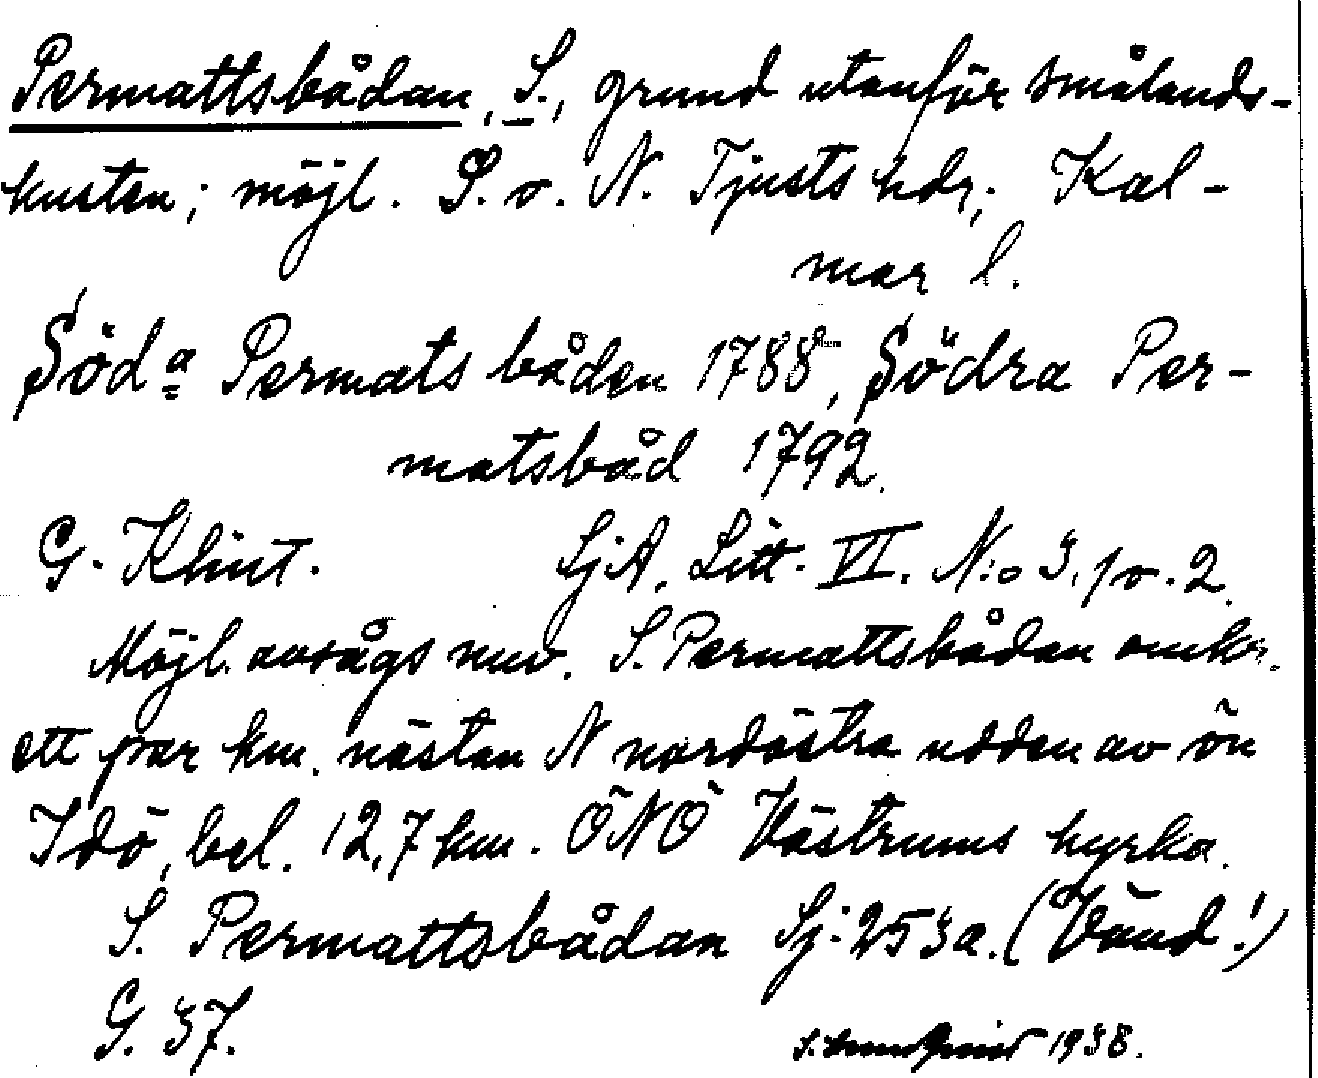 Permattsbådan, S., grund utanför Smålands-
kusten; möjl. S. o. N. Tjusts hdr, Kal-
mar l.
Södª Permats båden 1788, Södra Per-
matsbåd 1792.
G. Klint. SjA, Litt. VI. N:o 3, 1 o. 2.
Möjl. avsågs nuv. S. Permattsbådan omkr.
ett par km. nästan N nordöstra udden av ön
Idö, bel. 12,7 km. ÖNÖ Västrums kyrka.
S. Permattsbådan Sj: 253a. (Vänd!)
G. 37.
1938.